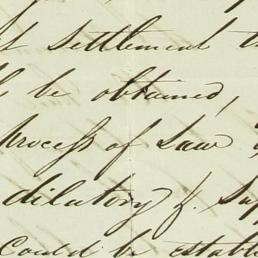 settlement
be obtained,
process of Law
dilatory &
could be